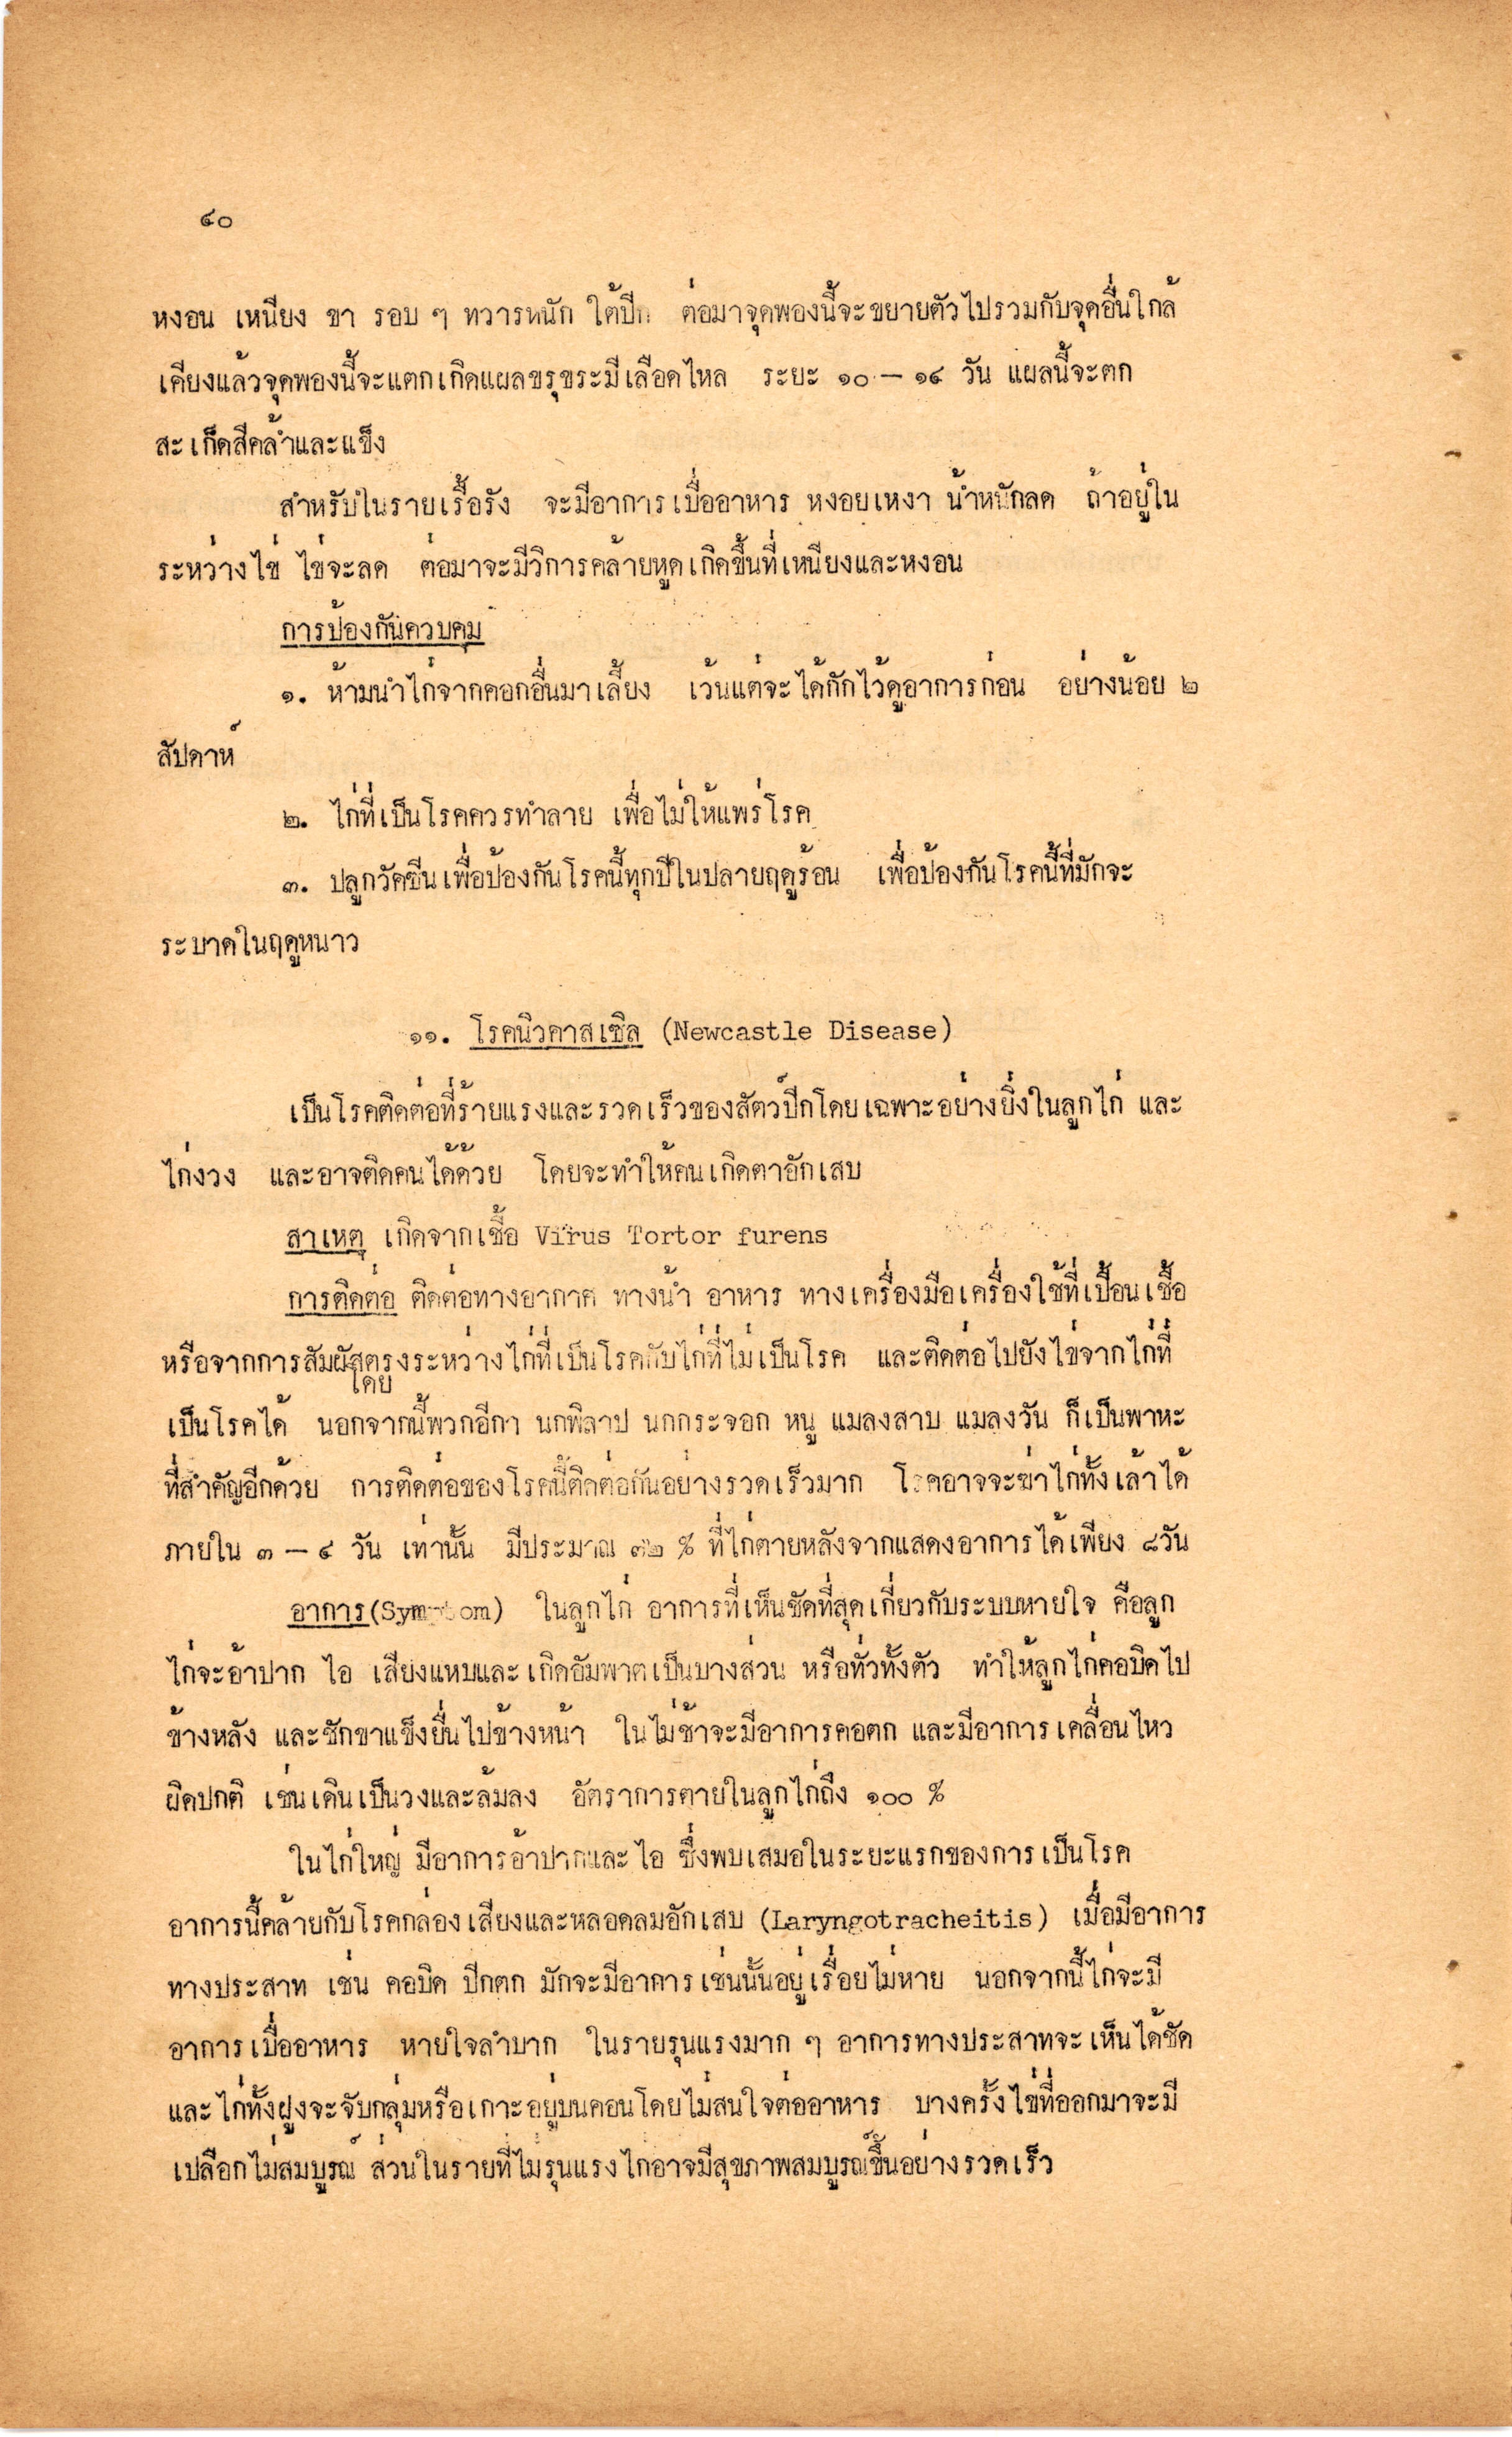 ๘๐
หงอน เหนียง ขา รอบ ๆ ทวารหนัก ใต้ปีก ต่อมาจุดพองนี้จะขยายตัวไปรวมกับจุดอื่นใกล้
เคียงแล้วจุดพองนี้จะแตกเกิดแผลขรุขระมีเลือดไหล ระยะ ๑๐ – ๑๔ วัน แผลนี้จะตก
สะเก็ดสีคล้ำและแข็ง
สำหรับในรายเรื้อรัง จะมีอาการเบื่ออาหาร หงอยเหงา น้ำหนักลด ถ้าอยู่ใน
ระหว่างไข่ ไข่จะลด ต่อมาจะมีวิการคล้ายหูดเกิดขึ้นที่เหนียงและหงอน
การป้องกันควบคุม
๑. ห้ามนำไก่จากคอกอื่นมาเลี้ยง เว้นแต่จะได้กักไว้ดูอาการก่อน อย่างน้อย ๒
สัปดาห์
๒. ไก่ที่เป็นโรคควรทำลาย เพื่อไม่ให้แพร่โรค
๓. ปลูกวัคซีนเพื่อป้องกันโรคนี้ทุกปีในปลายฤดูร้อน เพื่อป้องกันโรคนี้ที่มักจะ
ระบาดในฤดูหนาว
๑๑. โรคนิวคาสเซิล (Newcastle Disease)
เป็นโรคติดต่อที่ร้ายแรงและรวดเร็วของสัตว์ปีกโดยเฉพาะอย่างยิ่งในลูกไก่ และ
ไก่งวง และอาจติดคนได้ด้วย โดยจะทำให้คนเกิดตาอักเสบ
สาเหตุ เกิดจากเชื้อ Virus Tortor furens
การติดต่อ ติดต่อทางอากาศ ทางน้ำ อาหาร ทางเครื่องมือเครื่องใช้ที่เปื้อนเชื้อ
หรือจากการสัมผัสโดยตรงระหว่างไก่ที่เป็นโรคกับไก่ที่ไม่เป็นโรค และติดต่อไปยังไข่จากไก่ที่
เป็นโรคได้ นอกจากนี้พวกอีกา นกพิลาป นกกระจอก หนู แมลงสาบ แมลงวัน ก็เป็นพาหะ
ที่สำคัญอีกด้วย การติดต่อของโรคนี้ติดต่อกันอย่างรวดเร็วมาก โรคอาจจะฆ่าไก่ทั้งเล้าได้
ภายใน ๓ – ๔ วัน เท่านั้น มีประมาณ ๓๒ % ที่ไก่ตายหลังจากแสดงอาการได้เพียง ๘วัน
อาการ(Symptom) ในลูกไก่ อาการที่เห็นชัดที่สุดเกี่ยวกับระบบหายใจ คือลูก
ไก่จะอ้าปาก ไอ เสียงแหบและเกิดอัมพาตเป็นบางส่วน หรือทั่วทั้งตัว ทำให้ลูกไก่คอบิดไป
ข้างหลัง และชักขาแข็งยื่นไปข้างหน้า ในไม่ช้าจะมีอาการคอตก และมีอาการเคลื่อนไหว
ผิดปกติ เช่นเดินเป็นวงและล้มลง อัตราการตายในลูกไก่ถึง ๑๐๐ %
ในไก่ใหญ่ มีอาการอ้าปากและไอ ซึ่งพบเสมอในระยะแรกของการเป็นโรค
อาการนี้คล้ายกับโรคกล่องเสียงและหลอดลมอักเสบ (Laryngotracheitis) เมื่อมีอาการ
ทางประสาท เช่น คอบิด ปีกตก มักจะมีอาการเช่นนั้นอยู่เรื่อยไม่หาย นอกจากนี้ไก่จะมี
อาการเบื่ออาหาร หายใจลำบาก ในรายรุนแรงมาก ๆ อาการทางประสาทจะเห็นได้ชัด
และไก่ทั้งฝูงจะจับกลุ่มหรือเกาะอยู่บนคอนโดยไม่สนใจต่ออาหาร บางครั้งไข่ที่ออกมาจะมี
เปลือกไม่สมบูรณ์ ส่วนในรายที่ไม่รุนแรงไก่อาจมีสุขภาพสมบูรณ์ขึ้นอย่างรวดเร็ว